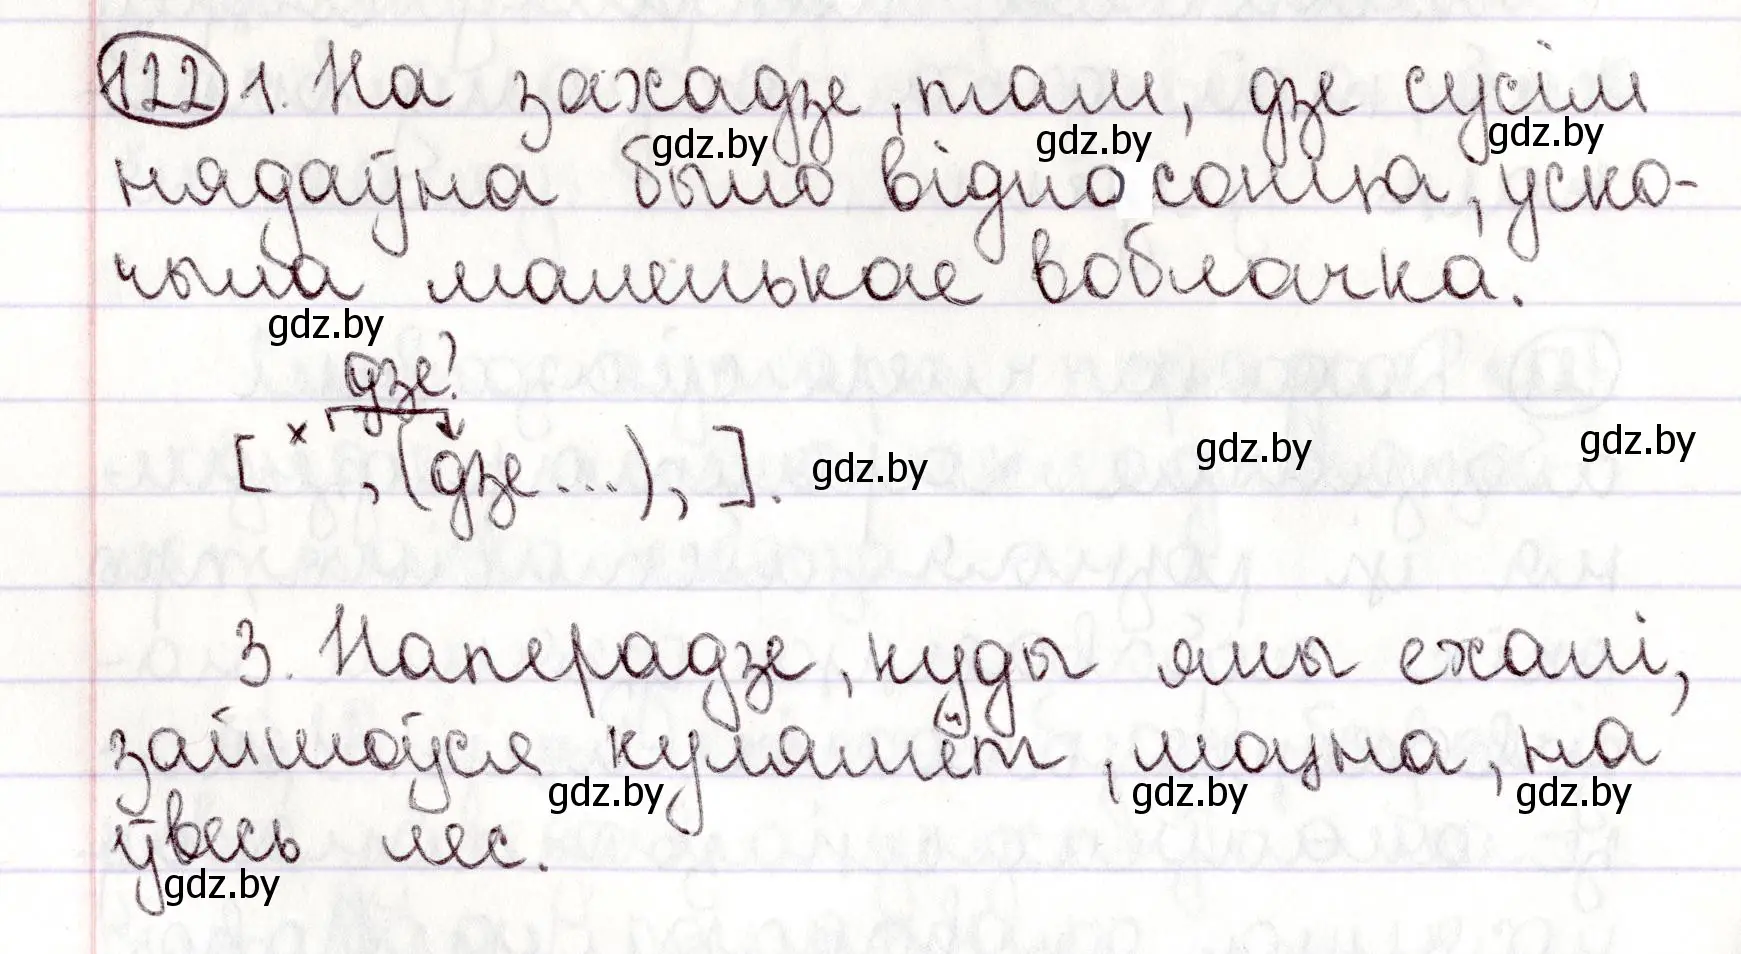 122 1. На захадзе, там, дзе сусім
gdz.by gdz.by gdz.by
нядаўна было відно сонца, уско-
чыла маленькае воблачка.
gdz.by
дзе?
[ × , (дзе...), ].
gdz.by gdz.by gdz.by
3. Наперадзе, куды яны ехалі,
зайшоўся кулямёт, моцна, на
gdz.by gdz.by gdz.by
ўвесь лес.
gdz.by